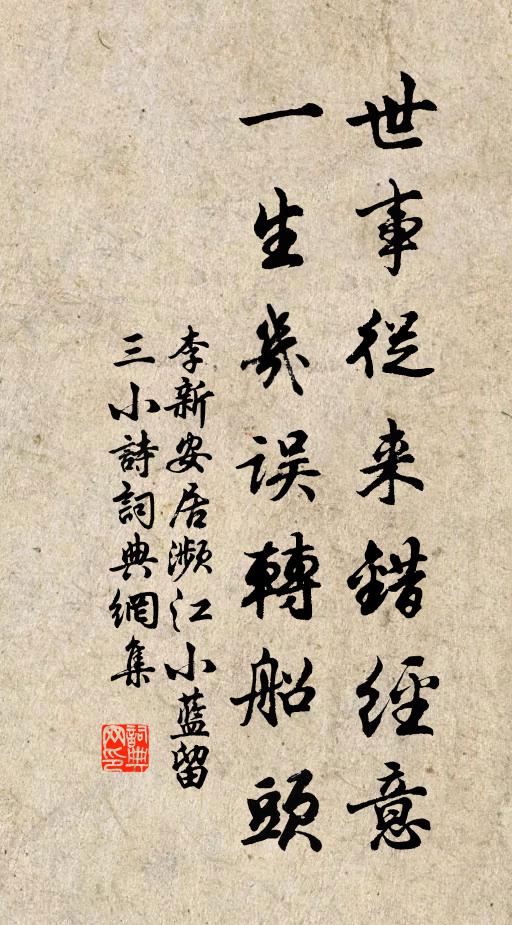 世事從来錯經意
一生幾误轉船頭
李新安居瀕江小藍留
三小詩詞典網集
詞典
网印